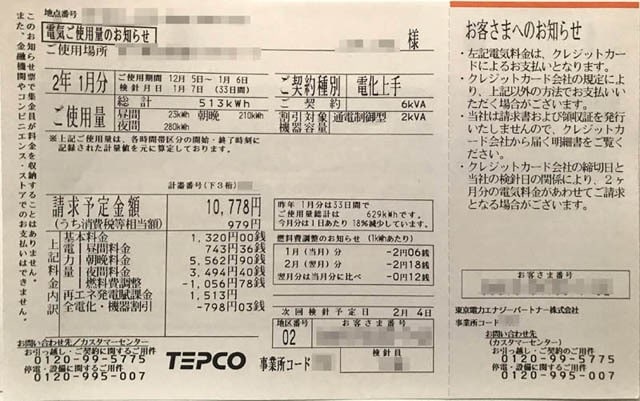 地点番号
電気ご使用量のお知らせ
ご使用場所
様
2年 1月分
ご使用期間 12月 5日～ 1月 6日
検針月日 1月 7日 (33日間)
ご使用量
総計 513kWh
昼間 23kWh 朝晩 210kWh
夜間 280kWh
ご契約種別 電化上手
ご契約 6kVA
割引対象機器容量 通電制御型 2kVA
※上記ご使用量は、各時間帯区分の開始・終了時刻に
記録された計量値を元に算定しております。
計器番号(下3桁)
請求予定金額 10,778円
(うち消費税等相当額) 979円
上記料金内訳
基本料金 1,320円00銭
電力 昼間料金 743円36銭
朝晩料金 5,562円90銭
夜間料金 3,494円40銭
燃料費調整 -1,056円78銭
再エネ発電賦課金 1,513円
全電化・機器割引 -798円03銭
昨年 1月分は33日間で
ご使用量総計は 629kWhです。
今月分は1日あたり 18%減少しています。
燃料費調整のお知らせ (1kWhあたり)
1月 (当月) 分 -2円06銭
2月 (翌月) 分 -2円18銭
翌月分は当月分に比べ -0円12銭
次回検針予定日 2月 4日
地区番号 お客さま番号
02
事業所コード 検針員
お問い合わせ先/カスタマーセンター
お引っ越し・ご契約に関するご用件
0120-99-5775
停電・設備に関するご用件
0120-995-007
TEPCO
このお知らせ票で集金員が料金を収納することはありません。
また、金融機関やコンビニエンス・ストアでのお支払いはできません。
お客さまへのお知らせ
・左記電気料金は、クレジットカー
ドによるお支払いとなります。
・クレジットカード会社の規定によ
り、上記以外の方法でお支払いい
ただく場合がございます。
・当社は請求書および領収証を発行
いたしませんので、クレジットカ
ード会社から届く明細書をご覧く
ださい。
・クレジットカード会社の締切日と
当社の検針日の関係により、2ヶ
月分の電気料金があわせてご請求
となる場合がございます。
お客さま番号
東京電力エナジーパートナー株式会社
事業所コード
お問い合わせ先
(カスタマーセンター)
お引っ越し・ご契約に関するご用件
0120-99-5775
停電・設備に関するご用件
0120-995-007